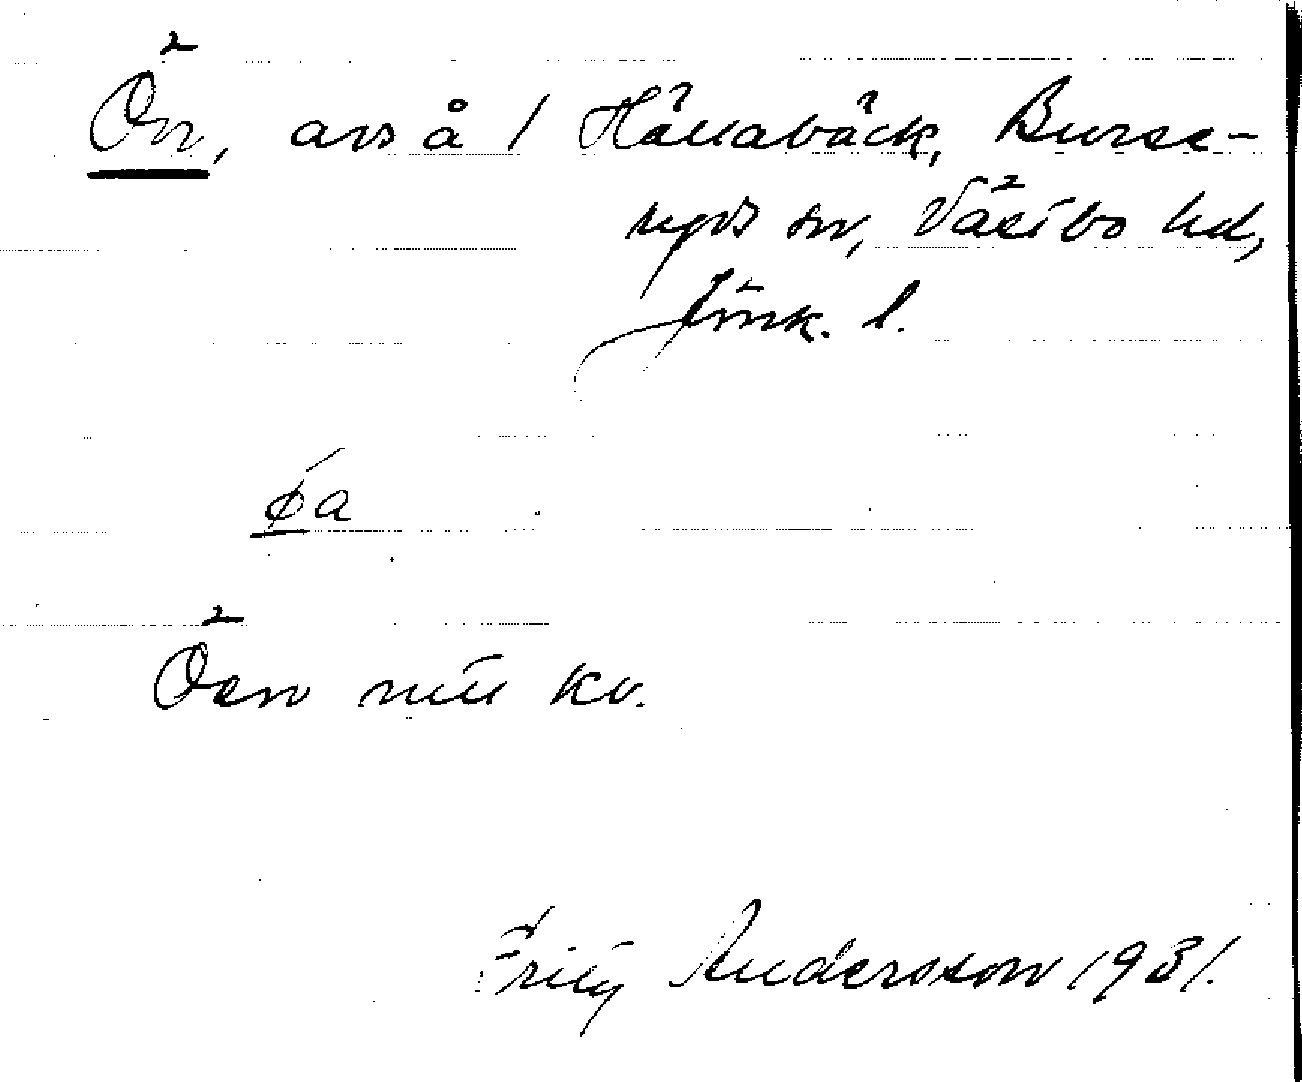 Ön, avs å / Hällabäck, Burse-
ryds sn, Västbo hd,
Jönk. l.
Öen mitt kv.
Fritz Andersson 1931.